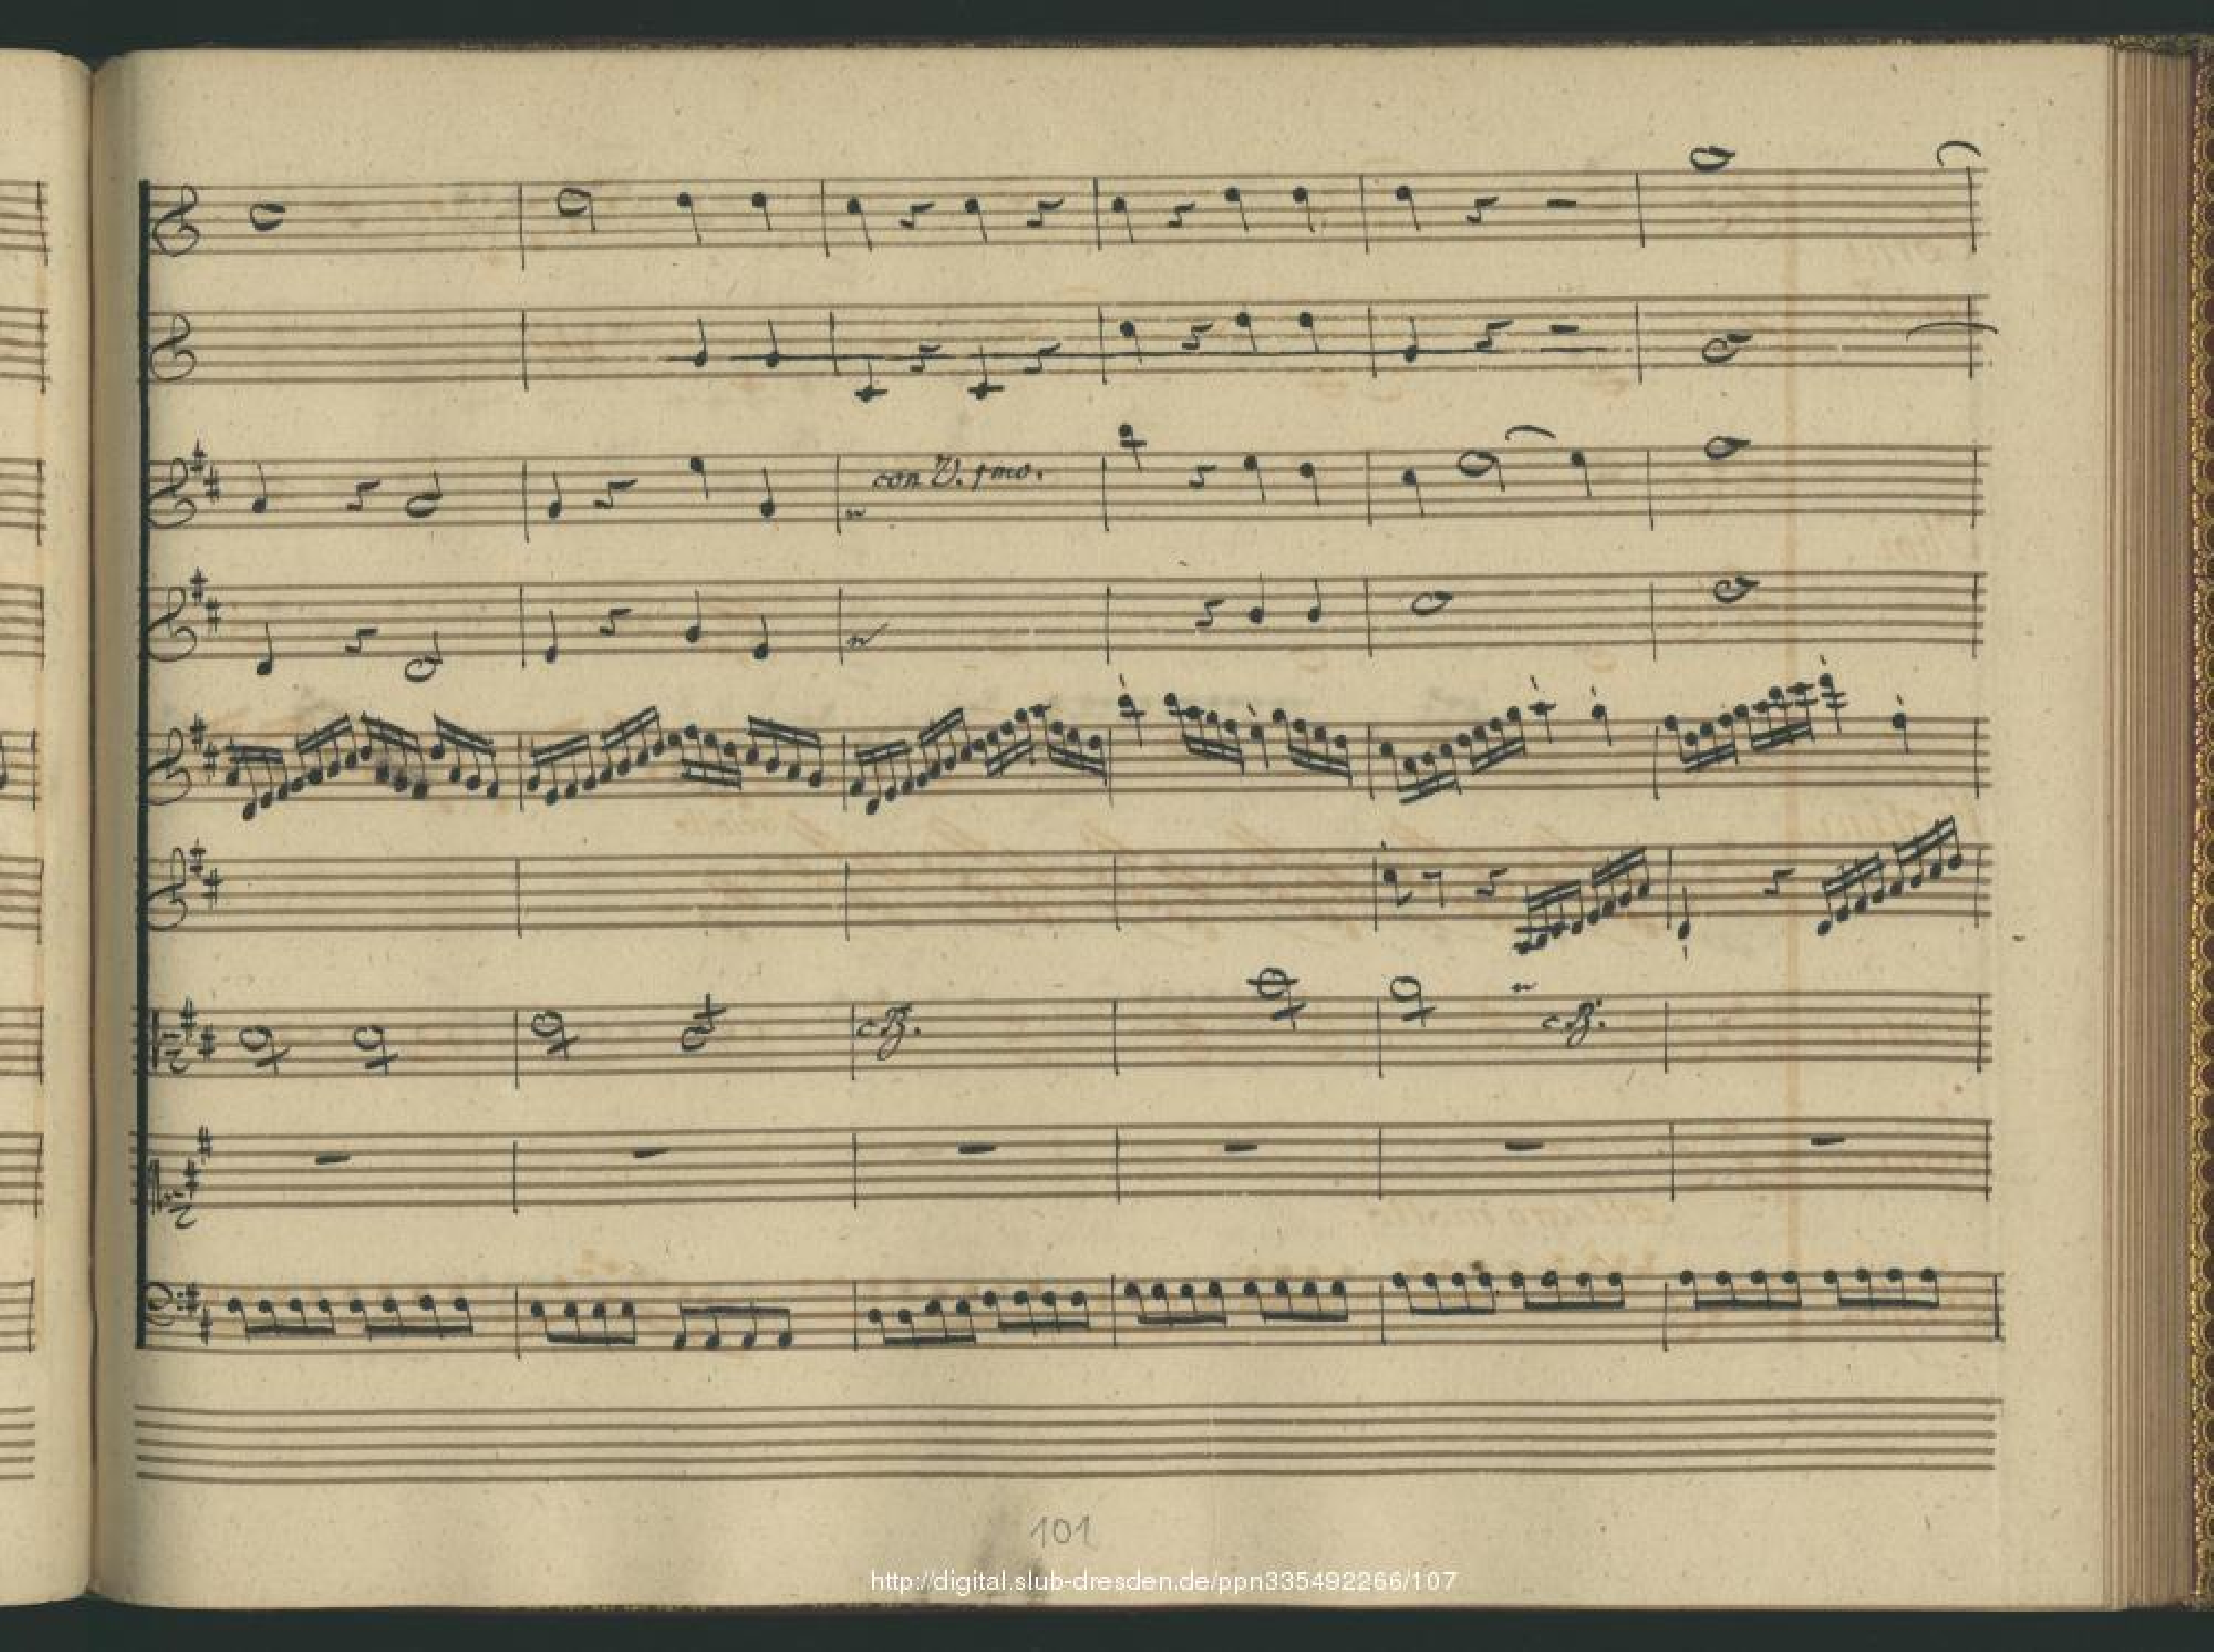 con V. pmo.
c.B.
c.B.
101
http://digital.slub-dresden.de/ppn335492266/107